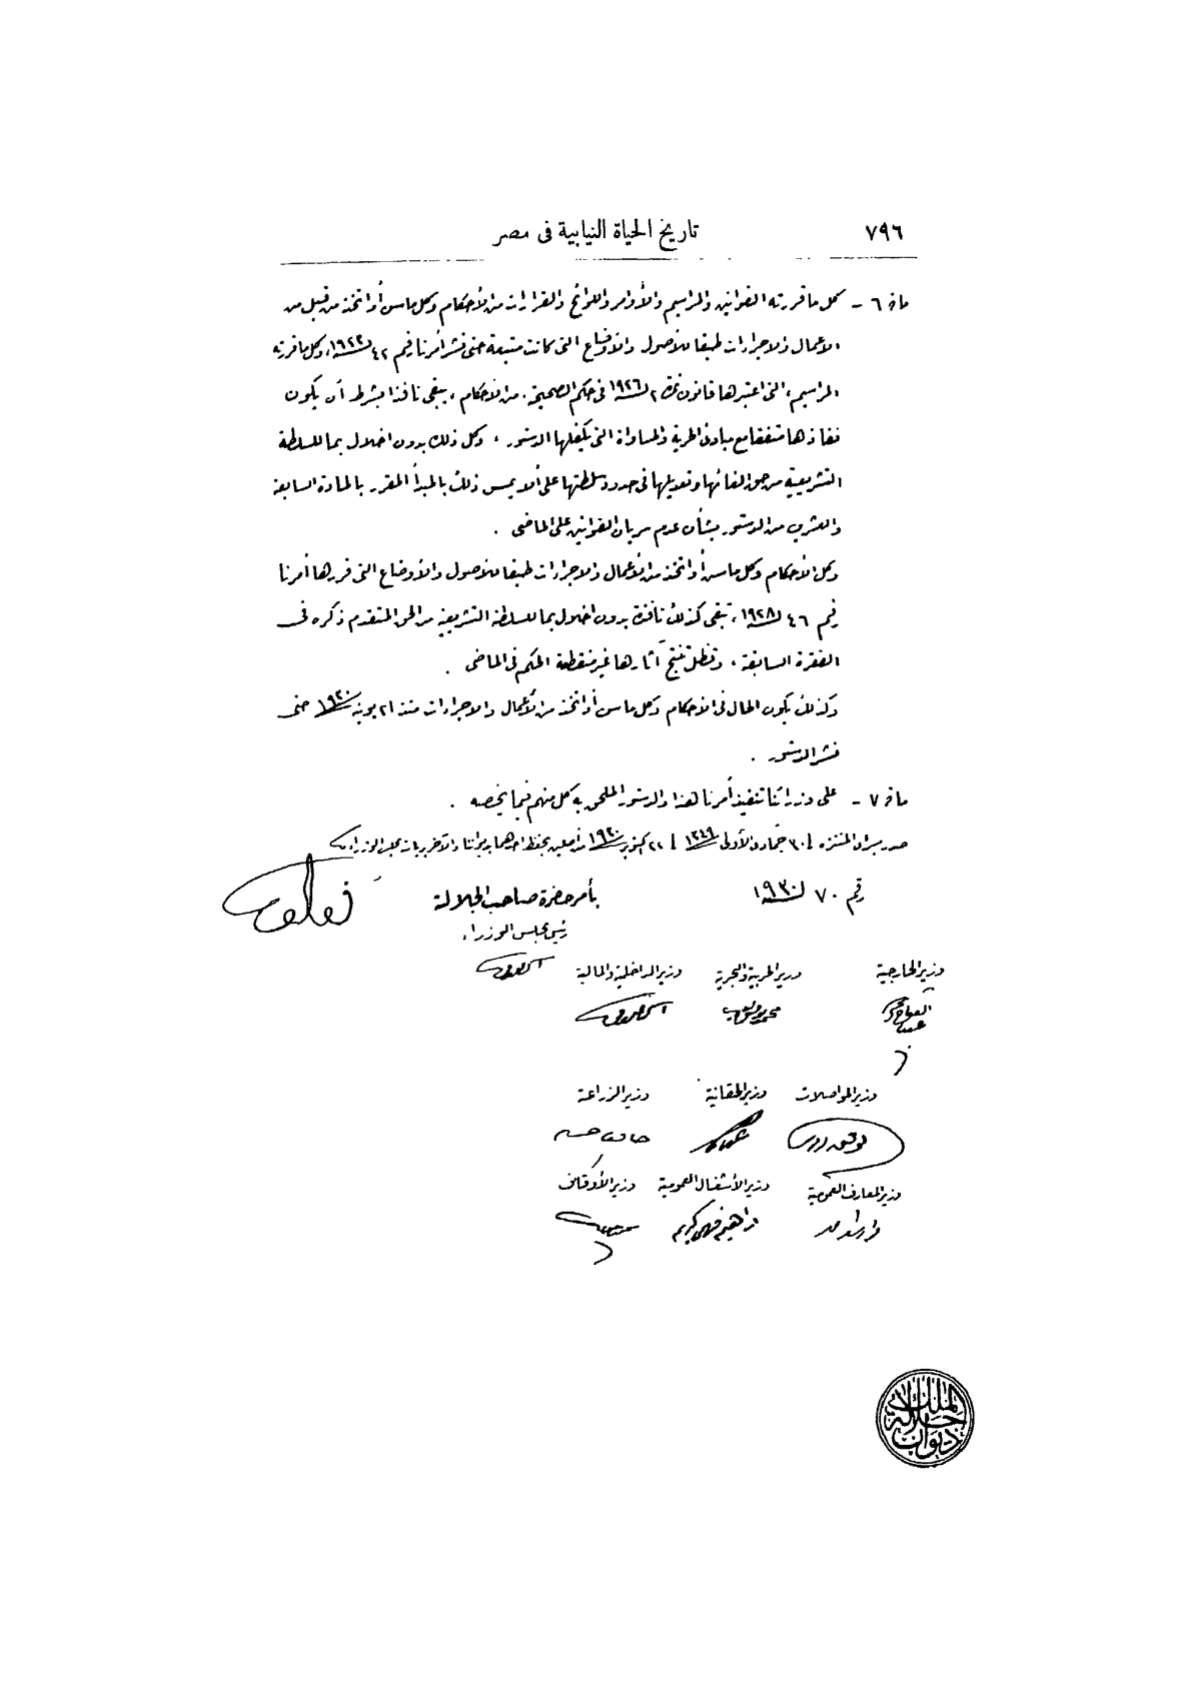 ٧٩٦
تاريخ الحياة النيابية فى مصر
مادة ٦ - كل ما قررته القوانين والمراسيم والأوامر واللوائح والقرارات من الأحكام وكل ما سن أو اتخذ من قبل من
الأعمال والاجراءات طبقا للأصول والأوضاع التى كانت متبعة حتى نشر أمرنا رقم ٤٢ لسنة ١٩٢٣، وكل ما قررته
المراسيم، التى اعتبرها قانون نمرة ٢ لسنة ١٩٢٦ فى حكم الصحيحة، من الأحكام، يبقى نافذا بشرط أن يكون
نفاذها متفقا مع مبادئ الحرية والمساواة التى يكفلها الدستور، وكل ذلك بدون اخلال بما للسلطة
التشريعية من حق الغائها وتعديلها فى حدود سلطتها على ألا يمس ذلك بالمبدأ المقرر بالمادة السابعة
والعشرين من الدستور بشأن عدم سريان القوانين على الماضى .
وكل الأحكام وكل ما سن أو اتخذ من الأعمال والاجراءات طبقا للأصول والأوضاع التى قررها أمرنا
رقم ٤٦ لسنة ١٩٢٨، تبقى كذلك نافذة بدون اخلال بما للسلطة التشريعية من الحق المتقدم ذكره فى
الفقرة السابقة، وتظل تنتج آثارها غير منقطعة الحكم فى الماضى .
وكذلك يكون الحال فى الأحكام وكل ما سن أو اتخذ من الأعمال والاجراءات منذ ٢١ يونيه ١٩٣٠ حتى
نشر الدستور .
مادة ٧ - على وزرائنا تنفيذ أمرنا هذا والدستور الملحق به كل منهم فيما يخصه .
صدر بسراى المنتزه فى ٣٠ جمادى الأولى ١٣٤٩ (٢٢ أكتوبر ١٩٣٠) من أصلين يحفظ أحدهما بديواننا والآخر برياسة مجلس الوزراء
رقم ٧٠ لسنة ١٩٣٠
فؤاد
بأمر حضرة صاحب الجلالة
رئيس مجلس الوزراء
وزير الخارجية
وزير الحربية والبحرية
وزير الداخلية والمالية
وزير المواصلات
وزير الحقانية
وزير الزراعة
توفيق دوس
حافظ حسن
وزير المعارف العمومية
وزير الأشغال العمومية
وزير الأوقاف
مراد سيد احمد
ابراهيم فهمى كريم
ديوان جلالة الملك